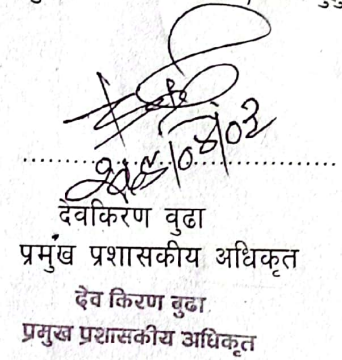 देवकिरण वुढा
प्रमुख प्रशासकीय अधिकृत
देव किरण बुढा
प्रमुख प्रशासकीय अधिकृत